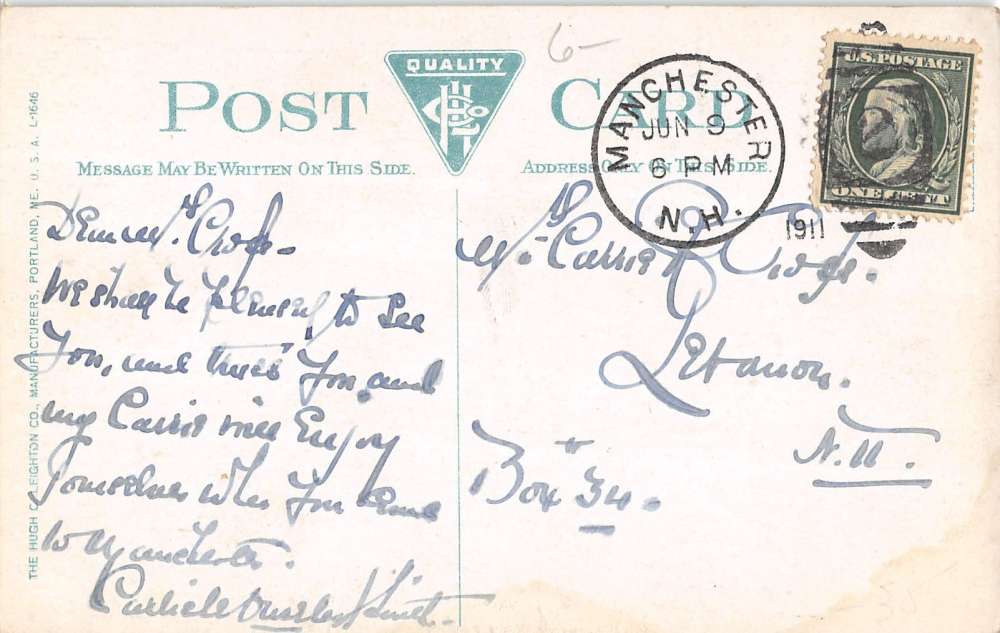 6-
QUALITY
POST CARD
MESSAGE MAY BE WRITTEN ON THIS SIDE.
ADDRESS ONLY ON THIS SIDE.
U.S. POSTAGE
ONE CENT
MANCHESTER
JUN 9
6 PM
N.H.
1911
THE HUGH C. LEIGHTON CO., MANUFACTURERS, PORTLAND, ME. U. S. A. L-1646
Dear
We shall be pleased to see
You, and trust You and
my Carrie will Enjoy
Yourselves when You Come
to Manchester.
Carrie
Lebanon.
N.H.
Box 34.